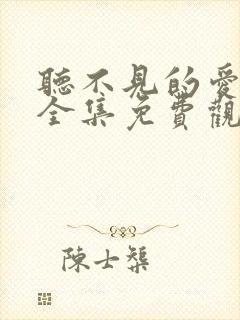 聽不見的愛
全集免費觀
陳士槊